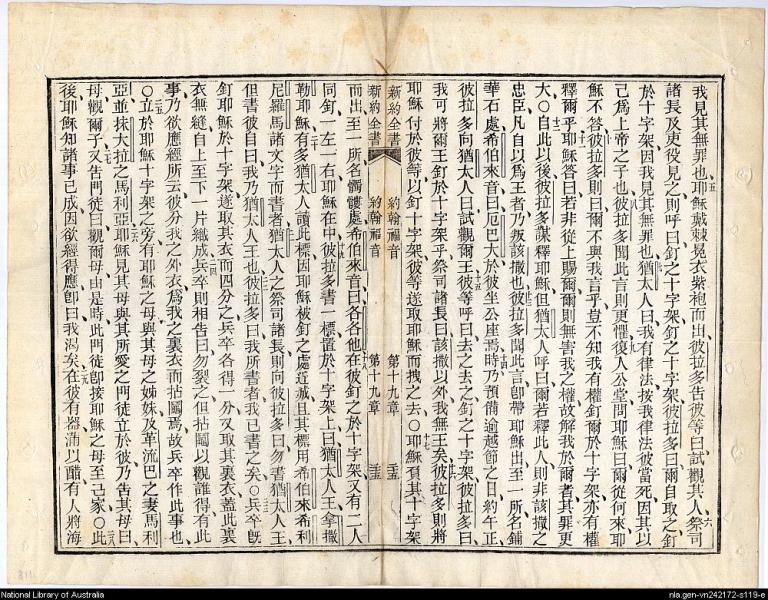 我見其無罪也耶穌戴棘冕衣紫袍而出彼拉多告彼等曰試觀其人祭司
諸長及吏役見之則呼曰釘之十字架釘之十字架彼拉多曰爾自取之釘
於十字架因我見其無罪也猶太人曰我有律法按我律法彼當死因其以
己爲上帝之子也彼拉多聞此言則更懼復入公堂問耶穌曰爾從何來耶
穌不答彼拉多則曰爾不與我言乎豈不知我有權釘爾於十字架亦有權
釋爾乎耶穌答曰若非從上賜爾爾則無害我之權故解我於爾者其罪更
大○自此以後彼拉多謀釋耶穌但猶太人呼曰爾若釋此人則非該撒之
忠臣凡自以爲王者乃叛該撒也彼拉多聞此言卽帶耶穌出至一所名鋪
華石處希伯來音曰厄巴大於彼坐公座焉時乃預備逾越節之日約午正
彼拉多向猶太人曰試觀爾王彼等呼曰去之去之釘之十字架彼拉多曰
我可將爾王釘於十字架乎祭司諸長曰該撒以外我無王矣彼拉多則將
耶穌付於彼等以釘十字架彼等遂取耶穌而拽之去○耶穌負其十字架
新約全書 約翰福音 第十九章
新約全書 約翰福音 第十九章
而出至一所名髑髏處希伯來音曰各各他在彼釘之於十字架又有二人
同釘一左一右耶穌在中彼拉多書一標置於十字架上曰猶太人王拿撒
勒耶穌有多猶太人讀此標因耶穌被釘之處近城且其標用希伯來希利
尼羅馬諸文字而書者猶太人之祭司諸長則向彼拉多曰勿書猶太人王
但書彼自曰我乃猶太人王也彼拉多曰我所書者我已書之矣○兵卒旣
釘耶穌於十字架遂取其衣而四分之兵卒各得一分又取其裏衣蓋此裏
衣無縫自上至下一片織成兵卒則相告曰勿裂之但拈鬮以觀誰得有此
事乃欲應經所云彼分我之外衣爲我之裏衣而拈鬮焉故兵卒作此事也
○立於耶穌十字架之旁有耶穌之母與其母之姊妹及革流巴之妻馬利
亞並抹大拉之馬利亞耶穌見其母與其所愛之門徒立於彼乃告其母曰
母觀爾子又吿門徒曰觀爾母由是時此門徒卽接耶穌之母至己家○此
後耶穌知諸事已成因欲經得應卽曰我渴矣在彼有器滿以醋有人將海
National Library of Australia
nla.gen-vn242172-s119-e